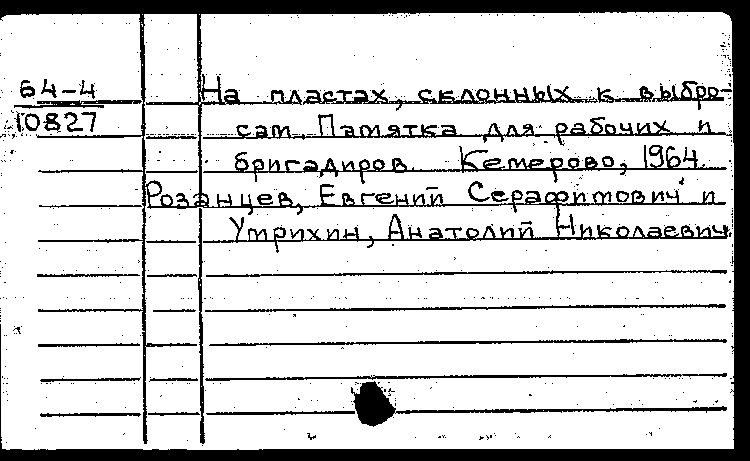 64-4
10827
На пластах, склонных к выбро-
сам. Памятка для рабочих и
бригадиров. Кемерово, 1964.
Розанцев, Евгений Серафимович и
Утрихин, Анатолий Николаевич